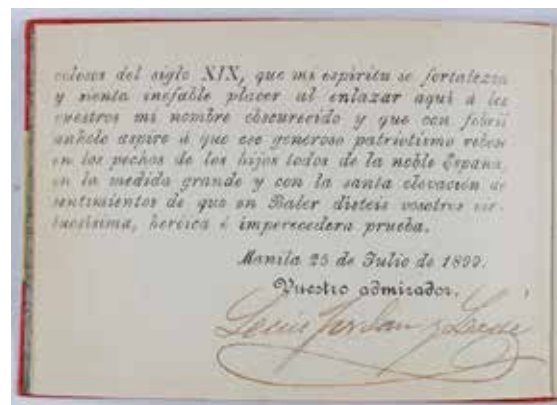 colosos del siglo XIX, que mi espíritu se fortalezca
y sienta inefable placer al enlazar aquí á los
vuestros mi nombre obscurecido y que con febril
anhelo aspire á que ese generoso patriotismo rebose
en los pechos de los hijos todos de la noble España,
en la medida grande y con la santa elevación de
sentimientos de que en Baler disteis vosotros vir-
tuosísima, heróica é imperecedera prueba.
Manila 25 de Julio de 1899.
Vuestro admirador,